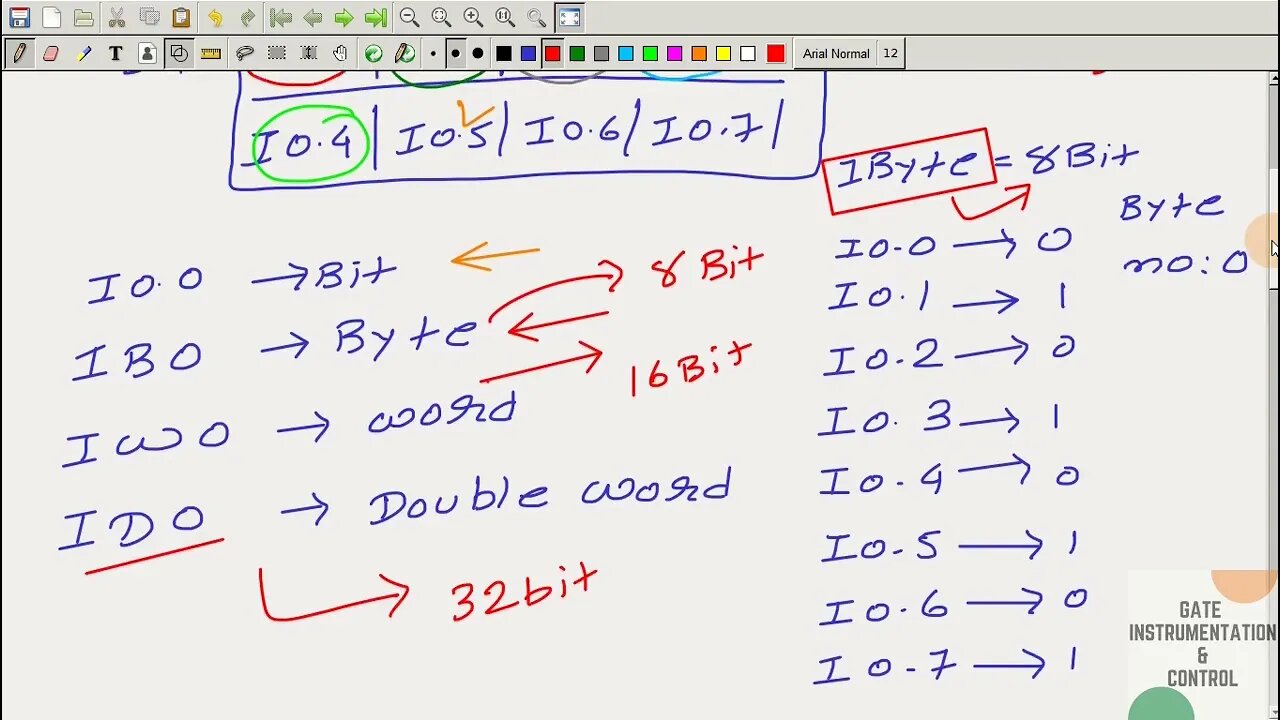 Arial Normal 12
I0.4 | I0.5 | I0.6 | I0.7 |
IByte = 8Bit
Byte
no: 0
I0.0 → Bit
8 Bit
IB0 → Byte
16Bit
IW0 → word
ID0 → Double word
32bit
I0.0 → 0
I0.1 → 1
I0.2 → 0
I0.3 → 1
I0.4 → 0
I0.5 → 1
I0.6 → 0
I0.7 → 1
GATE
INSTRUMENTATION
&
CONTROL